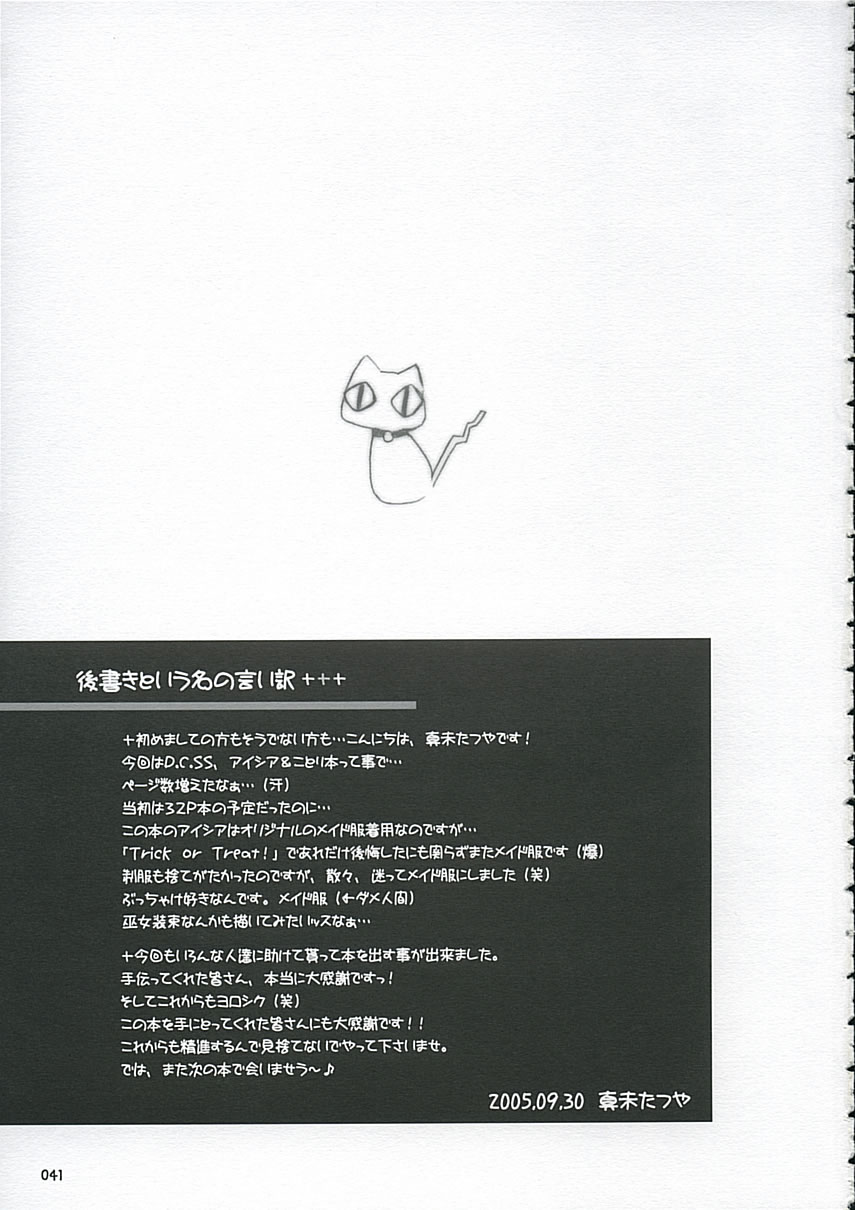 後書きという名の言い訳+++
+初めましての方もそうでない方も…こんにちは、真未たつやです!
今回はD.C.S.S、アイシア&ことり本って事で…
ページ数増えたなぁ…(汗)
当初は32P本の予定だったのに…
この本のアイシアはオリジナルのメイド服着用なのですが…
「Trick or Treat!」であれだけ後悔したにも関らずまたメイド服です(爆)
制服も捨てがたかったのですが、散々、迷ってメイド服にしました(笑)
ぶっちゃけ好きなんです。メイド服(←ダメ人間)
巫女装束なんかも描いてみたいッスなぁ…
+今回もいろんな人達に助けて貰って本を出す事が出来ました。
手伝ってくれた皆さん、本当に大感謝ですっ!
そしてこれからもヨロシク(笑)
この本を手にとってくれた皆さんにも大感謝です!!
これからも精進するんで見捨てないでやって下さいませ。
では、また次の本で会いませう〜♪
2005.09.30 真未たつや
041